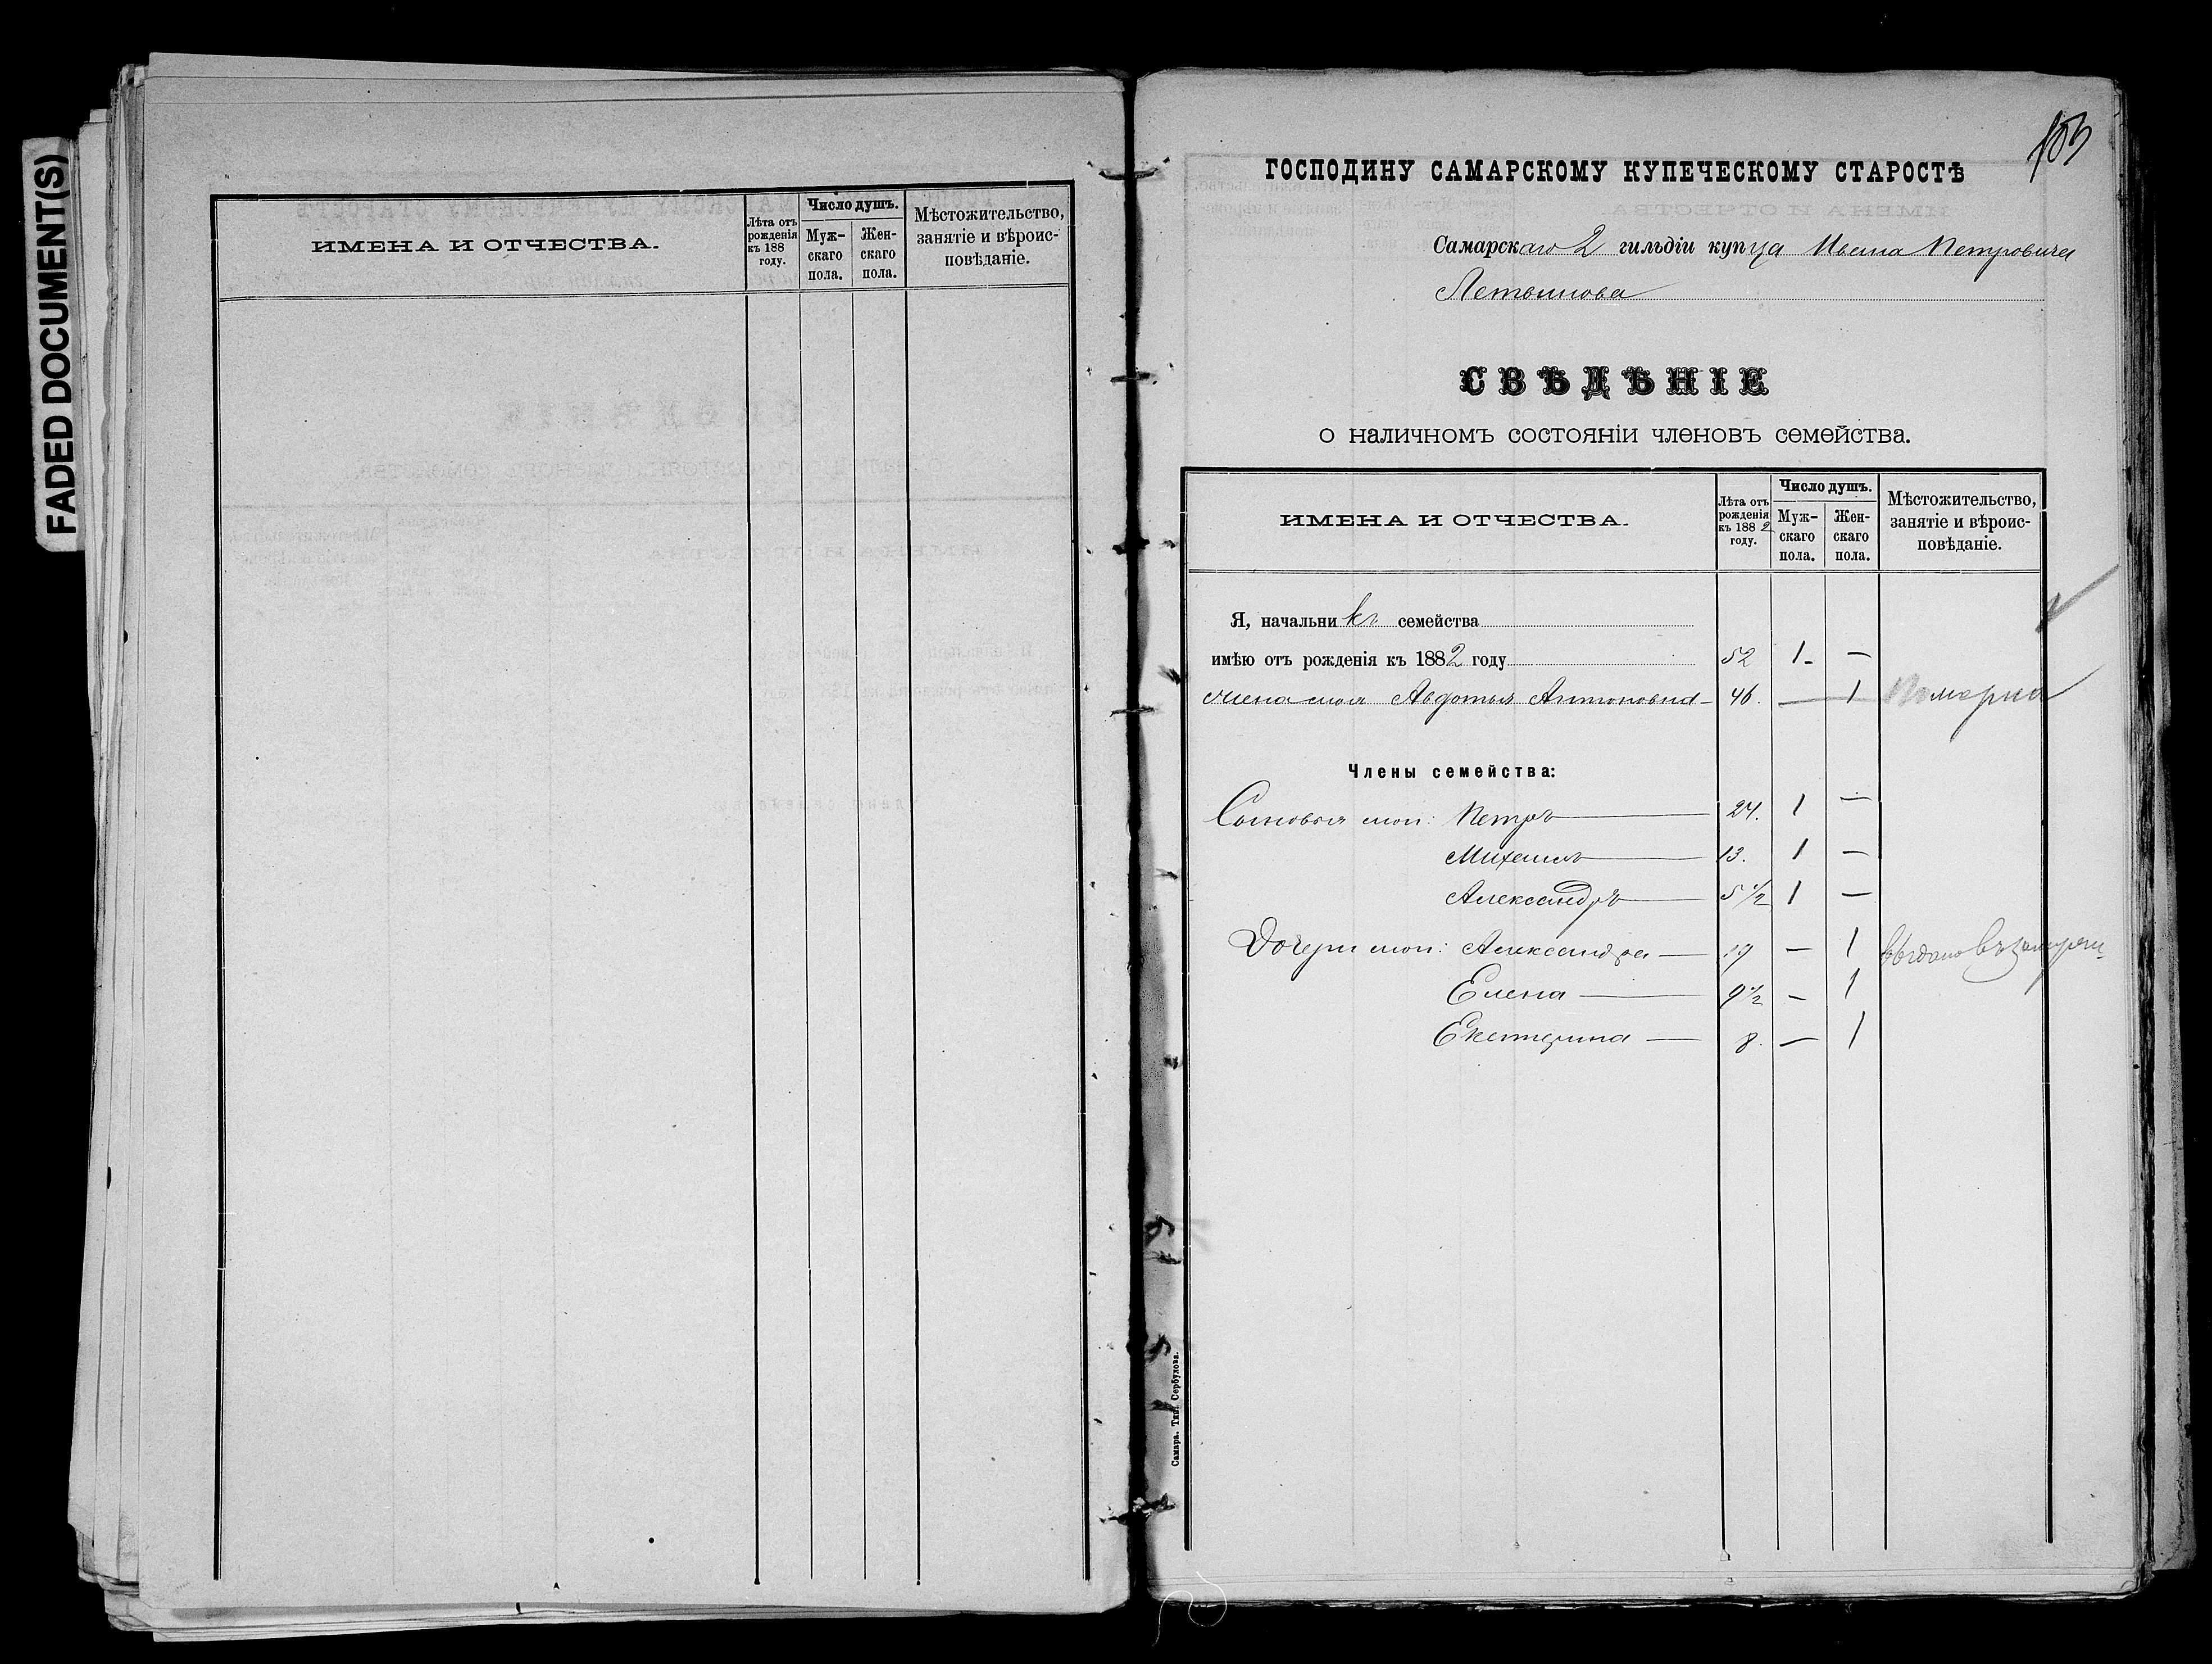 FADED DOCUMENT(S)
ИМЕНА И ОТЧЕСТВА.
Лѣта отъ рожденія къ 188 году.
Число душъ.
Муж-скаго пола.
Жен-скаго пола.
Мѣстожительство, занятіе и вѣроис-повѣданіе.
103
ГОСПОДИНУ САМАРСКОМУ КУПЕЧЕСКОМУ СТАРОСТѢ
Самарскаго 2 гильдіи купца Ивана Петровича
Летвинова
СВѢДѢНІЕ
о наличномъ состояніи членовъ семейства.
ИМЕНА И ОТЧЕСТВА.
Лѣта отъ рожденія къ 1882 году.
Число душъ.
Муж-скаго пола.
Жен-скаго пола.
Мѣстожительство, занятіе и вѣроис-повѣданіе.
Я, начальникъ семейства
имѣю отъ рожденія къ 1882 году 52 1 —
жена моя Авдотья Антоновна 46. — 1 Померла
Члены семейства:
Сыновья мои: Петръ 24. 1 —
Михаилъ 13. 1 —
Александръ 5 1/2 1 —
Дочери мои: Александра 19 — 1
Елена 9 1/2 — 1
Екатерина 8. — 1
Самара. Тип. Сербулова.